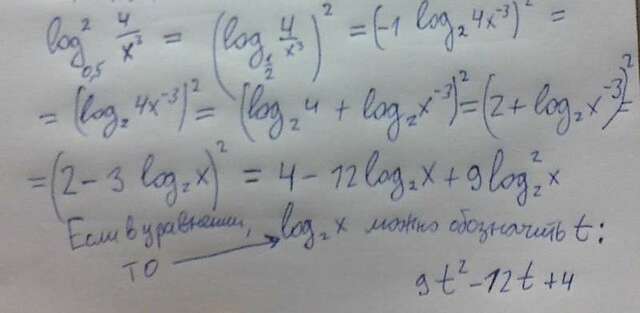 log²₀,₅ 4/x³ = (log_{1/2} 4/x³)² = (-1 log₂ 4x⁻³)² =
= (log₂ 4x⁻³)² = (log₂ 4 + log₂ x⁻³)² = (2 + log₂ x⁻³)² =
= (2 - 3 log₂ x)² = 4 - 12 log₂ x + 9 log₂² x
Если в уравнении, log₂ x можно обозначить t:
то
9t² - 12t + 4